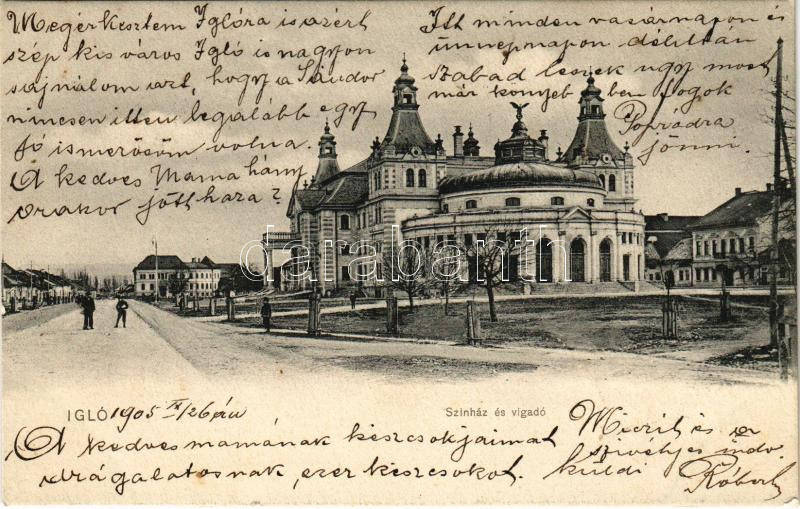 Megérkeztem Iglóra is azért
szép kis város Igló is nagyon
sajnálom azt, hogy a Sándor
nincsen itten legalább egy
jó ismerősöm volna.
A kedves Mama hány
órakor jött haza?
Itt minden vasárnapon és
ünnepnapon délután
szabad leszek úgy most
már könnyebben fogok
Poprádra
jönni.
carabanth
IGLÓ 1905 IX/26 án
Szinház és vigadó
A kedves mamának kézcsókjaimat
drágalatosnak, ezer kézcsókot.
Miczit és
szívélyes üdv.
küldi Róbert